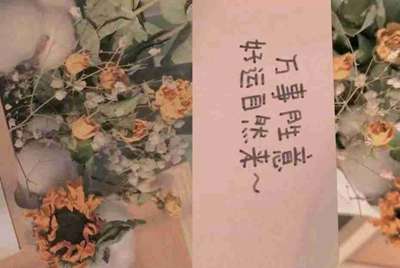 万事胜意
好运自然来~